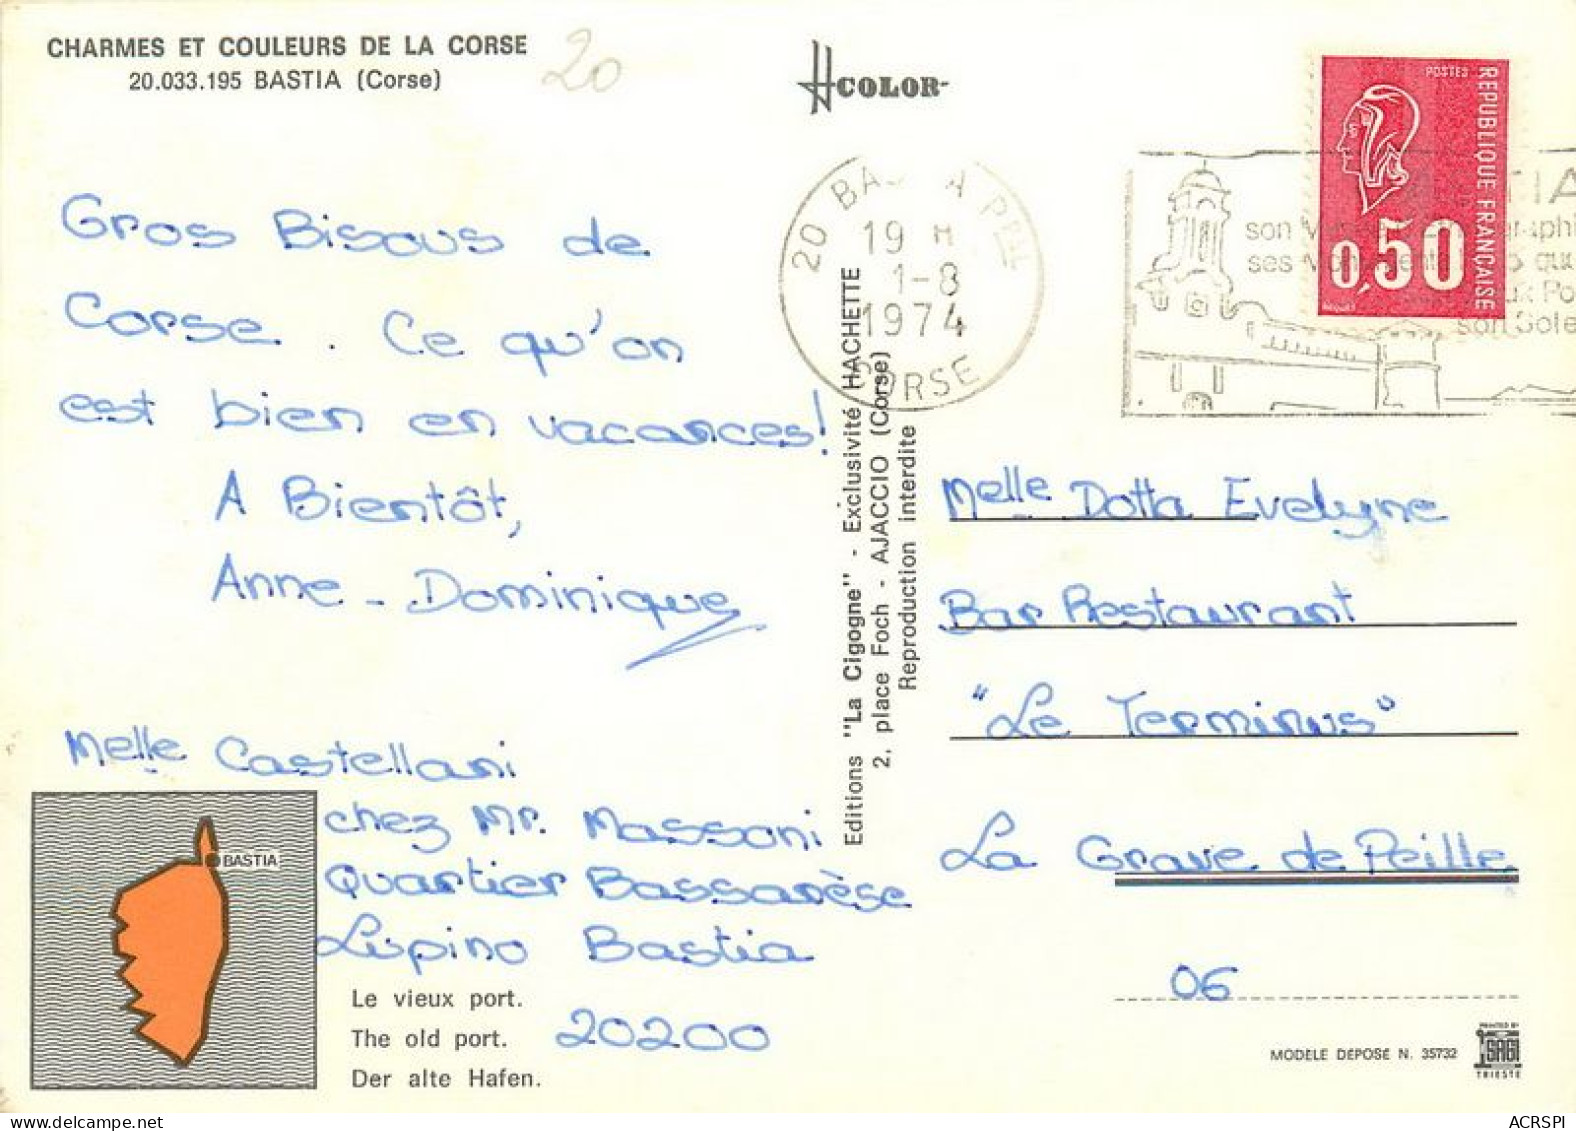 CHARMES ET COULEURS DE LA CORSE
20.033.195 BASTIA (Corse)
20
COLOR
POSTES
REPUBLIQUE FRANÇAISE
0,50
20 BASTIA PPAL
19 H
1-8
1974
CORSE
son
ses
son Sole
Gros Bisous de
Corse. Ce qu'on
est bien en vacances!
A Bientôt,
Anne-Dominique
Melle Castellani
chez Mr. Massoni
Quartier Bassanèse
Lupino Bastia
20200
BASTIA
Le vieux port.
The old port.
Der alte Hafen.
Editions "La Cigogne" - Exclusivité HACHETTE
2, place Foch - AJACCIO (Corse)
Reproduction interdite
Melle Dotta Evelyne
Bar Restaurant
"Le Terminus"
La Grave de Peille
06
MODELE DEPOSE N. 35732
PRINTED BY
SAGI
TRIESTE
ACRSPI